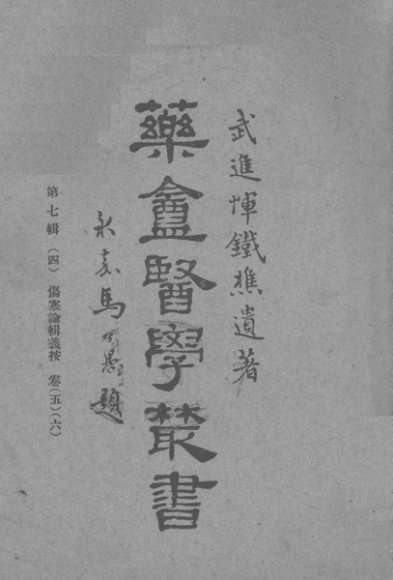 武進惲鐵樵遺著
藥盦醫學叢書
永嘉馬公愚題
第七輯（四） 傷寒論輯義按 卷（五）（六）